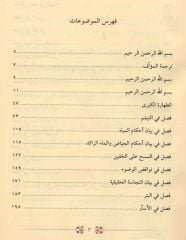 فهرس الموضوعات
بسم الله الرحمن الرحيم ٥
ترجمة المؤلف ٧
بسم الله الرحمن الرحيم ٩
بسم الله الرحمن الرحيم ١١
الطهارة الكبرى ٤٧
فصل في التيمم ٧٣
فصل في بيان أحكام المياه ١٠٥
فصل في بيان أحكام الحياض والماء الراكد ١٢٧
فصل في المسح على الخفين ١٤٩
فصل في نواقض الوضوء ١٧٣
فصل في بيان النجاسة الحقيقية ١٧١
فصل في البئر ١٨٥
فصل في الأسآر ١٩٥
٣